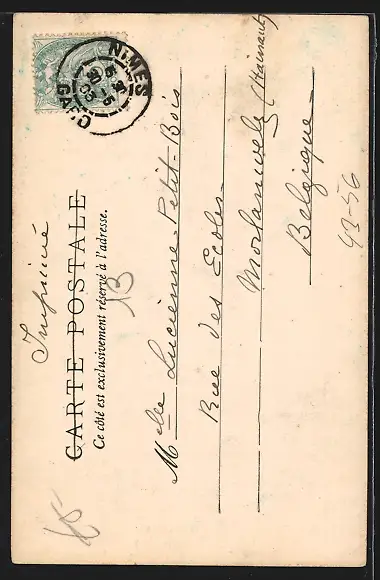 Imprimé
CARTE POSTALE
Ce côté est exclusivement réservé à l'adresse.
NIMES
GARD
Mlle Lucienne Petit-Bois
Rue des Ecoles
Morlanwelz (Hainaut)
Belgique
13
43-56